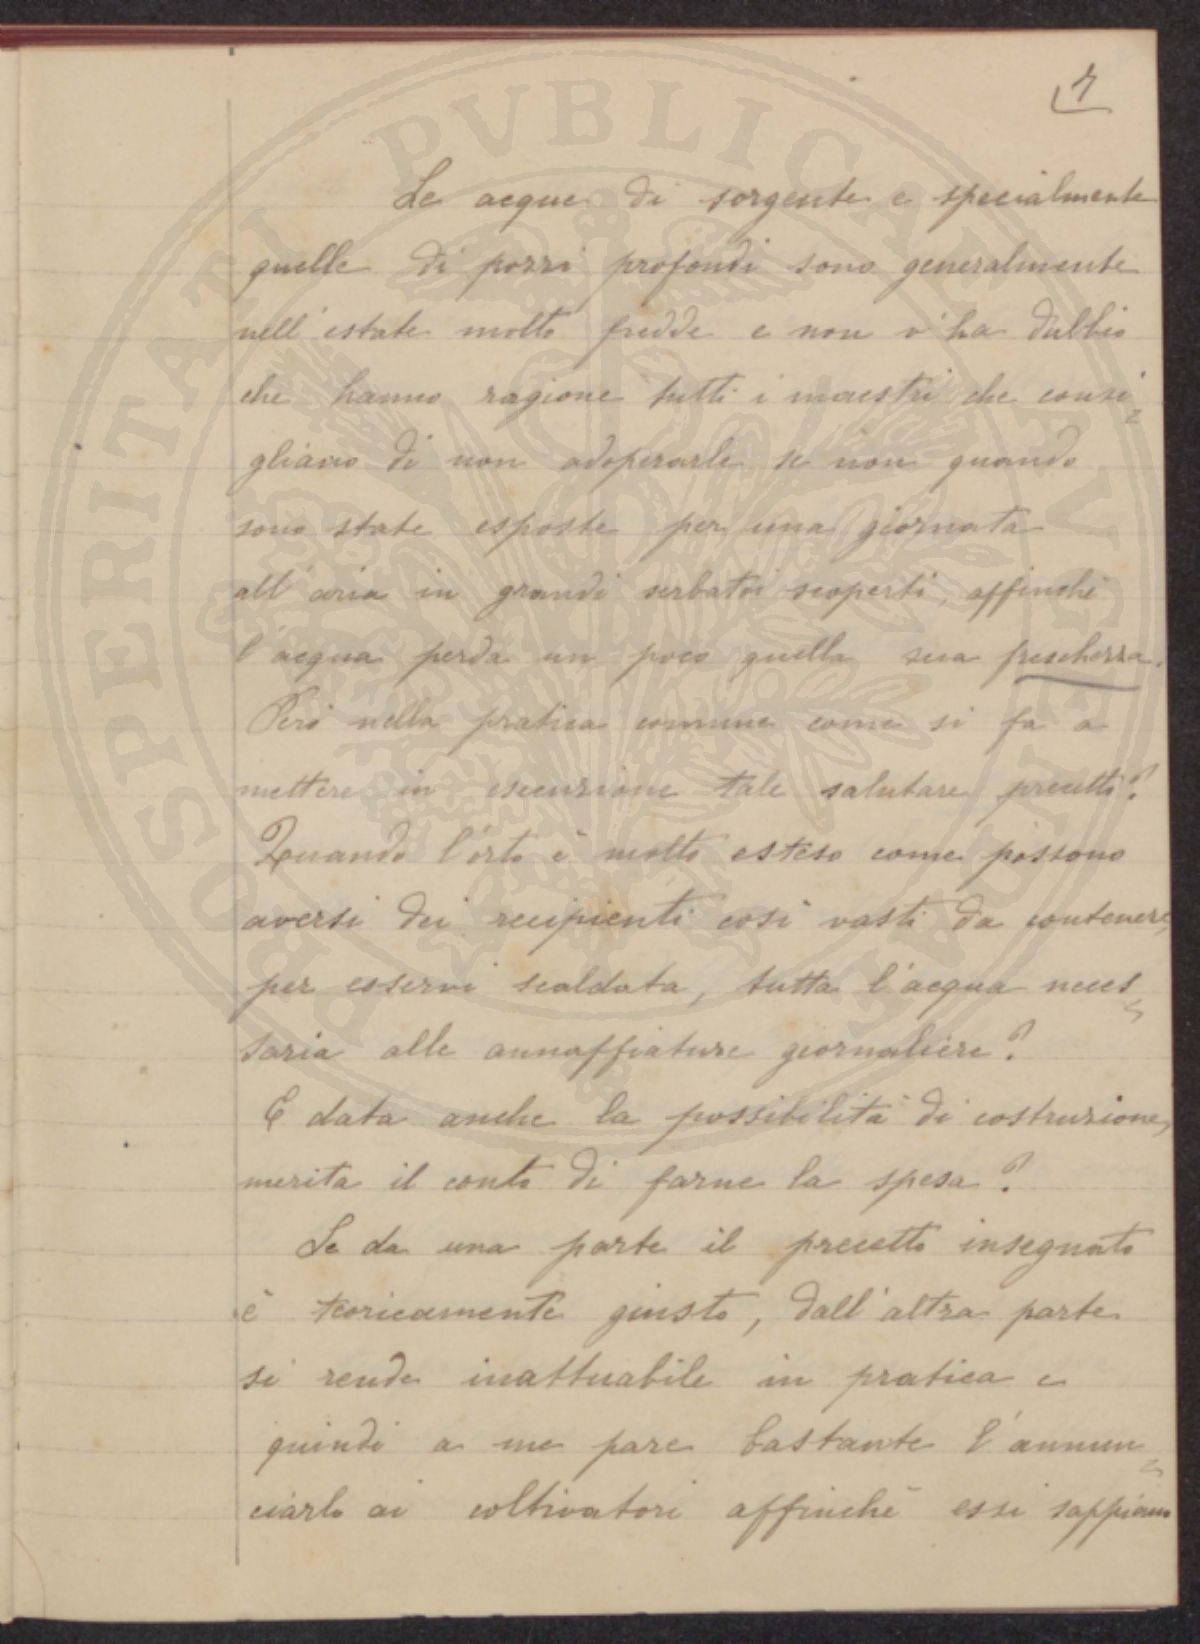 7
Le acque di sorgente e specialmente
quelle di pozzi profondi sono generalmente
nell'estate molto fredde e non v'ha dubbio
che hanno ragione tutti i maestri che consi=
gliano di non adoperarle se non quando
sono state esposte per una giornata
all'aria in grandi serbatoi scoperti, affinchè
l'acqua perda un poco quella sua freschezza.
Però nella pratica comune come si fa a
mettere in esecuzione tale salutare precetto?
Quando l'orto è molto esteso come possono
aversi dei recipienti così vasti da contenere,
per esservi scaldata, tutta l'acqua neces=
saria alle annaffiature giornaliere?
E data anche la possibilità di costruzione,
merita il conto di farne la spesa?
Se da una parte il precetto insegnato
è teoricamente giusto, dall'altra parte
si rende inattuabile in pratica e
quindi a me pare bastante l'annun=
ciarlo ai coltivatori affinchè essi sappiano
PROSPERITATI PVBLICAE AVGENDAE